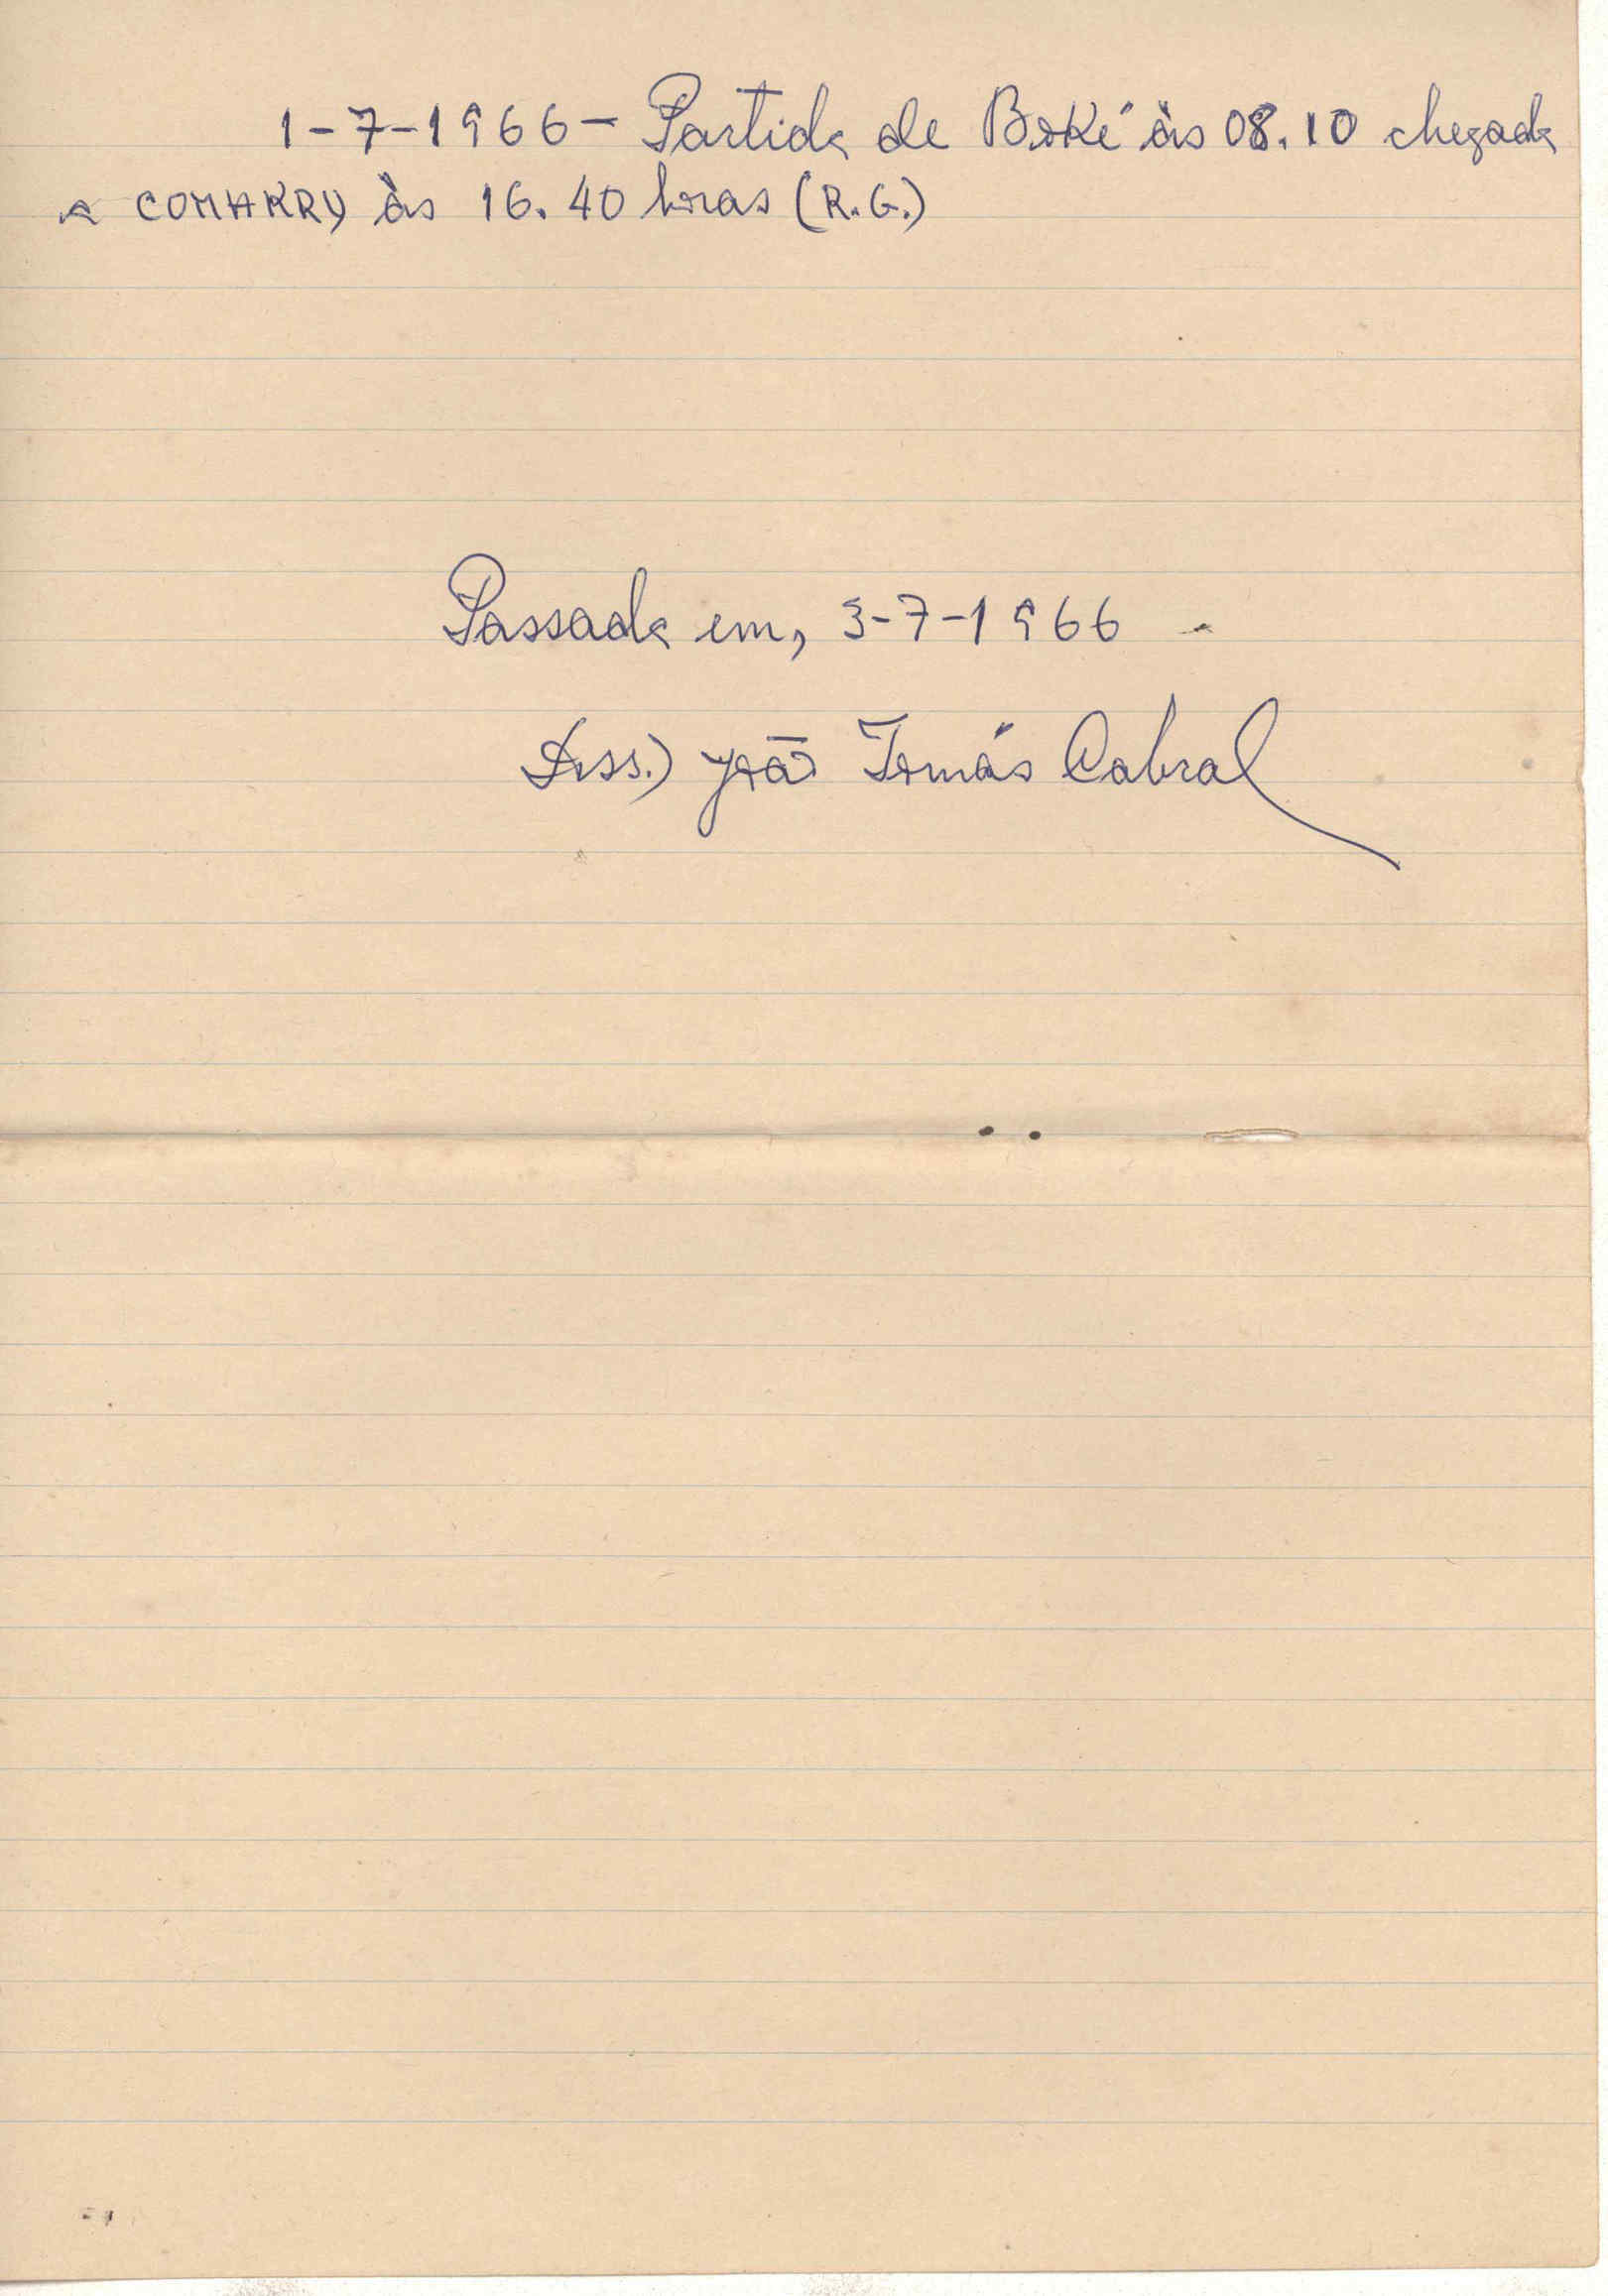 1-7-1966 - Partida de Boké às 08.10 chegada
a CONAKRY às 16.40 horas (R.G.)
Passada em, 3-7-1966
Ass.) João Tomás Cabral